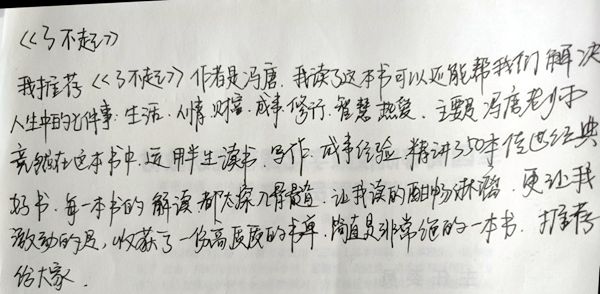 《了不起》
我推荐《了不起》作者是冯唐.我读了这本书可以还能帮我们解决
人生中的七件事:生活.人情.财富.成事.修行.智慧.热爱.主要是冯唐老师
竟然在这本书中.运用半生读书.写作.成事经验.精讲了50本传世经典
好书.每一本书的解读都太深入骨髓.让我读的酣畅淋漓.更让我
激动的是,收获了一份高质质的书单.简直是非常绝的一本书.推荐
给大家.